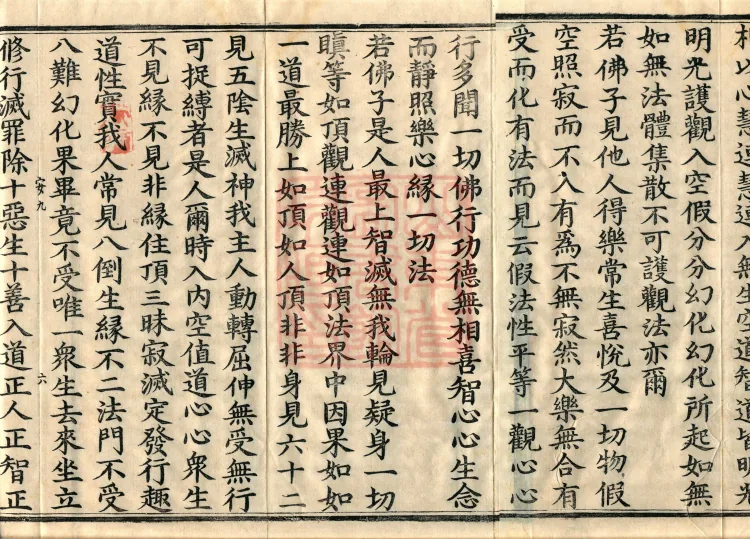 明光護觀入空假分分幻化幻化所起如無
如無法體集散不可護觀法亦爾
若佛子見他人得樂常生喜悅及一切物假
空照寂而不入有爲不無寂然大樂無合有
受而化有法而見云假法性平等一觀心心
行多聞一切佛行功德無相喜智心心生念
而靜照樂心緣一切法
若佛子是人最上智滅無我輪見疑身一切
瞋等如頂觀連觀連如頂法界中因果如如
一道最勝上如頂如人頂非非身見六十二
見五陰生滅神我主人動轉屈伸無受無行
可捉縛者是人爾時入內空值道心心衆生
不見緣不見非緣住頂三昧寂滅定發行趣
道性實我人常見八倒生緣不二法門不受
八難幻化果畢竟不受唯一衆生去來坐立
六
修行滅罪除十惡生十善入道正人正智正